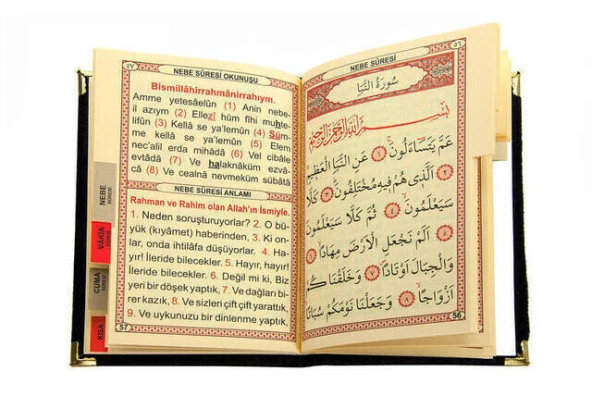 NEBE SÛRESİ OKUNUŞU
Bismillâhirrahmânirrahıym.
Amme yetesâelûn (1) Anin nebe-
il azıym (2) Ellezî hüm fîhi muhte-
lifûn (3) Kellâ se ya'lemûn (4) Süm-
me kellâ se ya'lemûn (5) Elem
nec'alil erda mihâdâ (6) Vel cibâle
evtâdâ (7) Ve halaknâküm ezvâ-
câ (8) Ve cealnâ nevmeküm sübâtâ
NEBE SÛRESİ ANLAMI
Rahman ve Rahim olan Allah'ın İsmiyle.
1. Neden soruşturuyorlar? 2. O bü-
yük (kıyâmet) haberinden, 3. Ki on-
lar, onda ihtilâfa düşüyorlar. 4. Ha-
yır! İleride bilecekler. 5. Hayır, hayır!
İleride bilecekler. 6. Değil mi ki, Biz
yeri bir döşek yaptık, 7. Ve dağları bi-
rer kazık, 8. Ve sizleri çift çift yarattık,
9. Ve uykunuzu bir dinlenme yaptık,
57
NEBE
SÛRESİ
VÂKIA
CUMA
KISA
NEBE SÛRESİ
سُورَةُ النَّبَأِ
بِسْمِ اللّٰهِ الرَّحْمٰنِ الرَّحِيمِ
عَمَّ يَتَسَاءَلُونَ ﴿١﴾ عَنِ النَّبَإِ الْعَظِيمِ
﴿٢﴾ اَلَّذِي هُمْ فِيهِ مُخْتَلِفُونَ ﴿٣﴾ كَلَّا
سَيَعْلَمُونَ ﴿٤﴾ ثُمَّ كَلَّا سَيَعْلَمُونَ
﴿٥﴾ اَلَمْ نَجْعَلِ الْاَرْضَ مِهَادًا ﴿٦﴾
وَالْجِبَالَ اَوْتَادًا ﴿٧﴾ وَخَلَقْنَاكُمْ
اَزْوَاجًا ﴿٨﴾ وَجَعَلْنَا نَوْمَكُمْ سُبَاتًا
56